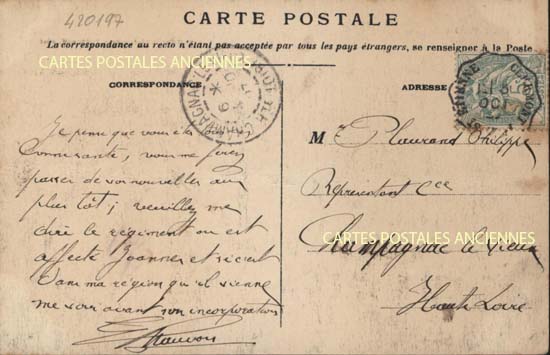 420197
CARTE POSTALE
La correspondance au recto n'étant pas acceptée par tous les pays étrangers, se renseigner à la Poste
CARTES POSTALES ANCIENNES
CORRESPONDANCE
ADRESSE
Je pense que vous êtes
vous me ferez
passer de vos nouvelles au
plus tôt; veuillez me
dire le régiment ou est
affecté Joannes et s'il est
dans ma région qu'il vienne
me voir avant son incorporation
M Plaurand Philippe
Représentant Cce
Champagnac le Vieux
Haute Loire
CARTES POSTALES ANCIENNES